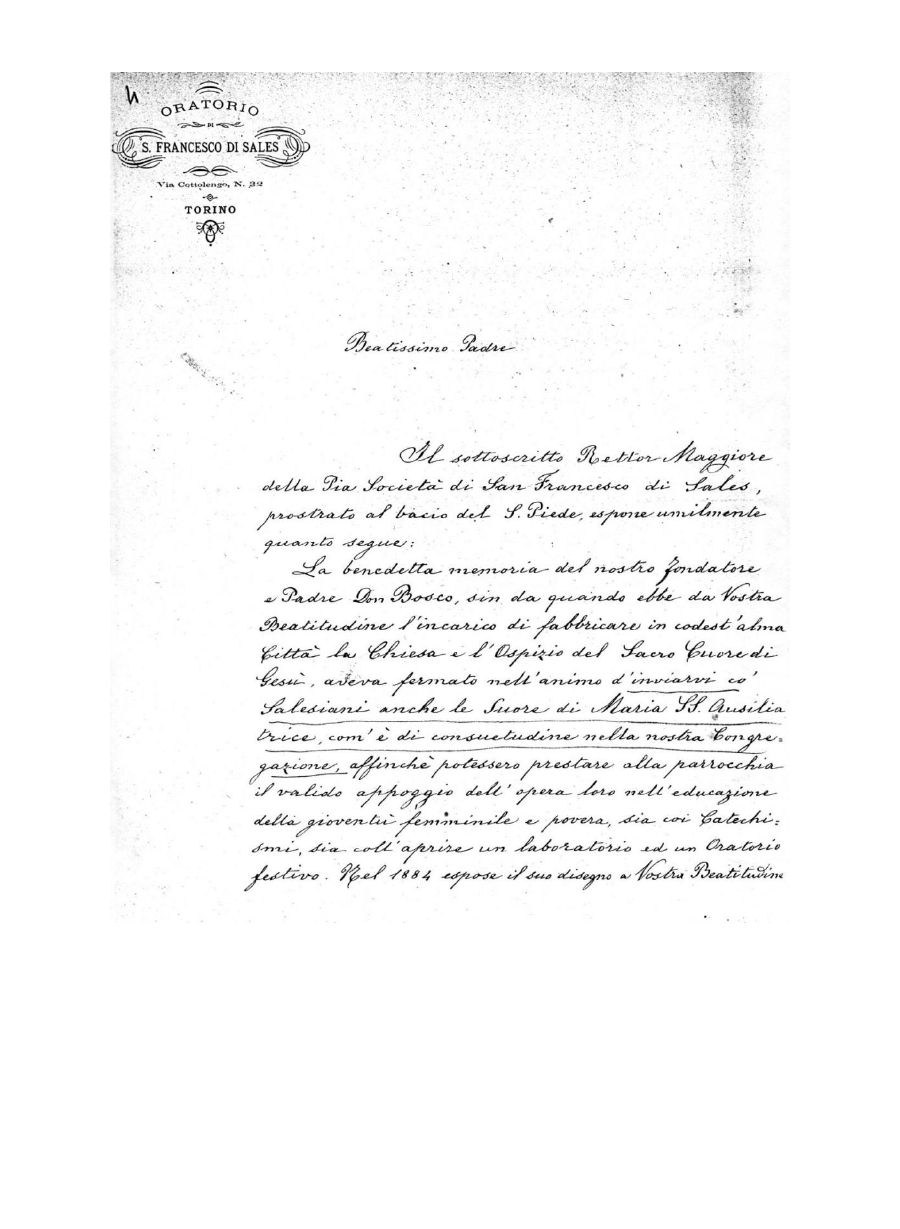 ORATORIO
DI
S. FRANCESCO DI SALES
Via Cottolengo, N. 32
TORINO
Beatissimo Padre
Il sottoscritto Rettor Maggiore
della Pia Società di San Francesco di Sales,
prostrato al bacio del S. Piede, espone umilmente
quanto segue:
La benedetta memoria del nostro fondatore
e Padre Don Bosco, sin da quando ebbe da Vostra
Beatitudine l'incarico di fabbricare in codest'alma
Città la Chiesa e l'Ospizio del Sacro Cuore di
Gesù, aveva fermato nell'animo d'inviarvi co'
Salesiani anche le Suore di Maria SS. Ausilia
trice, com'è di consuetudine nella nostra Congre=
gazione, affinchè potessero prestare alla parrocchia
il valido appoggio dell'opera loro nell'educazione
della gioventù femminile e povera, sia coi Catechi=
smi, sia coll'aprire un laboratorio ed un Oratorio
festivo. Nel 1884 espose il suo disegno a Vostra Beatitudine